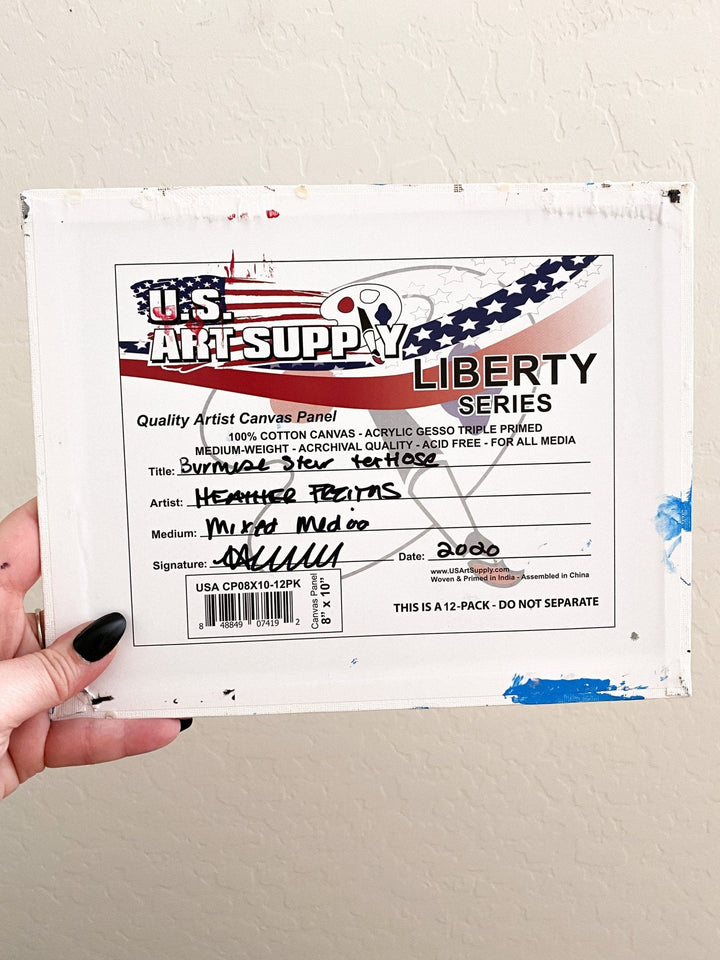 U.S.
ART SUPPLY
LIBERTY
SERIES
Quality Artist Canvas Panel
100% COTTON CANVAS - ACRYLIC GESSO TRIPLE PRIMED
MEDIUM-WEIGHT - ACRCHIVAL QUALITY - ACID FREE - FOR ALL MEDIA
Title: Burmese Star tortiose
Artist: HEATHER FREITAS
Medium: Mixed Media
Signature:
Date: 2020
www.USArtSupply.com
Woven & Primed in India - Assembled in China
USA CP08X10-12PK
8 48849 07419 2
Canvas Panel
8" x 10"
THIS IS A 12-PACK - DO NOT SEPARATE